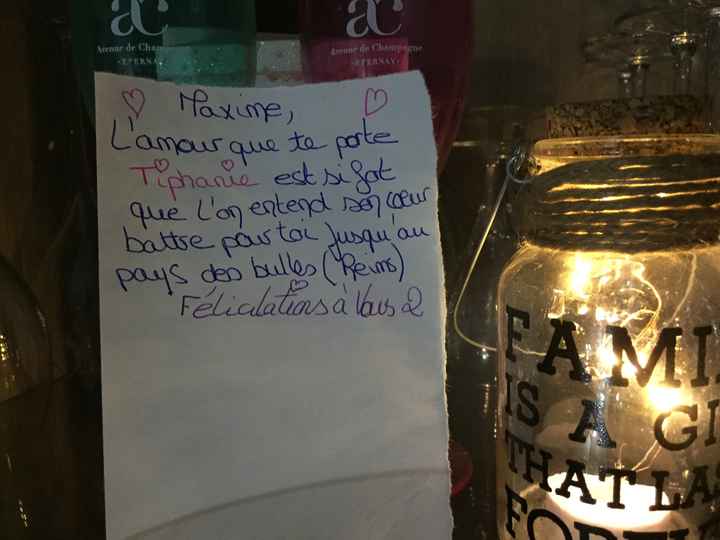 aC
Avenue de Cham
-EPERNAY-
aC
Avenue de Champagne
-EPERNAY-
Maxime,
L'amour que te porte
Tiphanie est si fort
que l'on entend son cœur
battre pour toi jusqu'au
pays des bulles (Reims)
Félicitations à Vous 2
FAMI
IS A GI
THAT LA
FOR